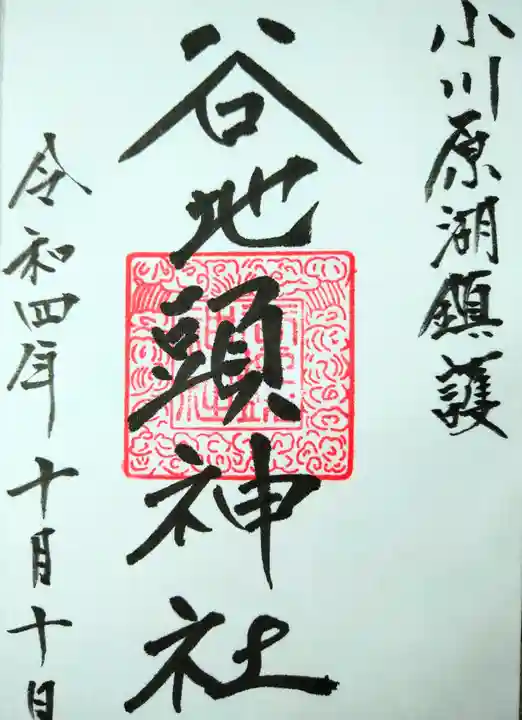 小川原湖鎮護
谷地頭神社
令和四年十月十日